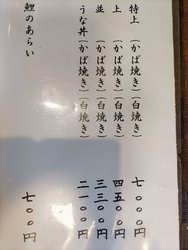 特上（かば焼き）（白焼き）　七〇〇〇円
上（かば焼き）（白焼き）　四五〇〇円
並（かば焼き）（白焼き）　三三〇〇円
うな丼（かば焼き）（白焼き）　二一〇〇円
鯉のあらい　七〇〇円